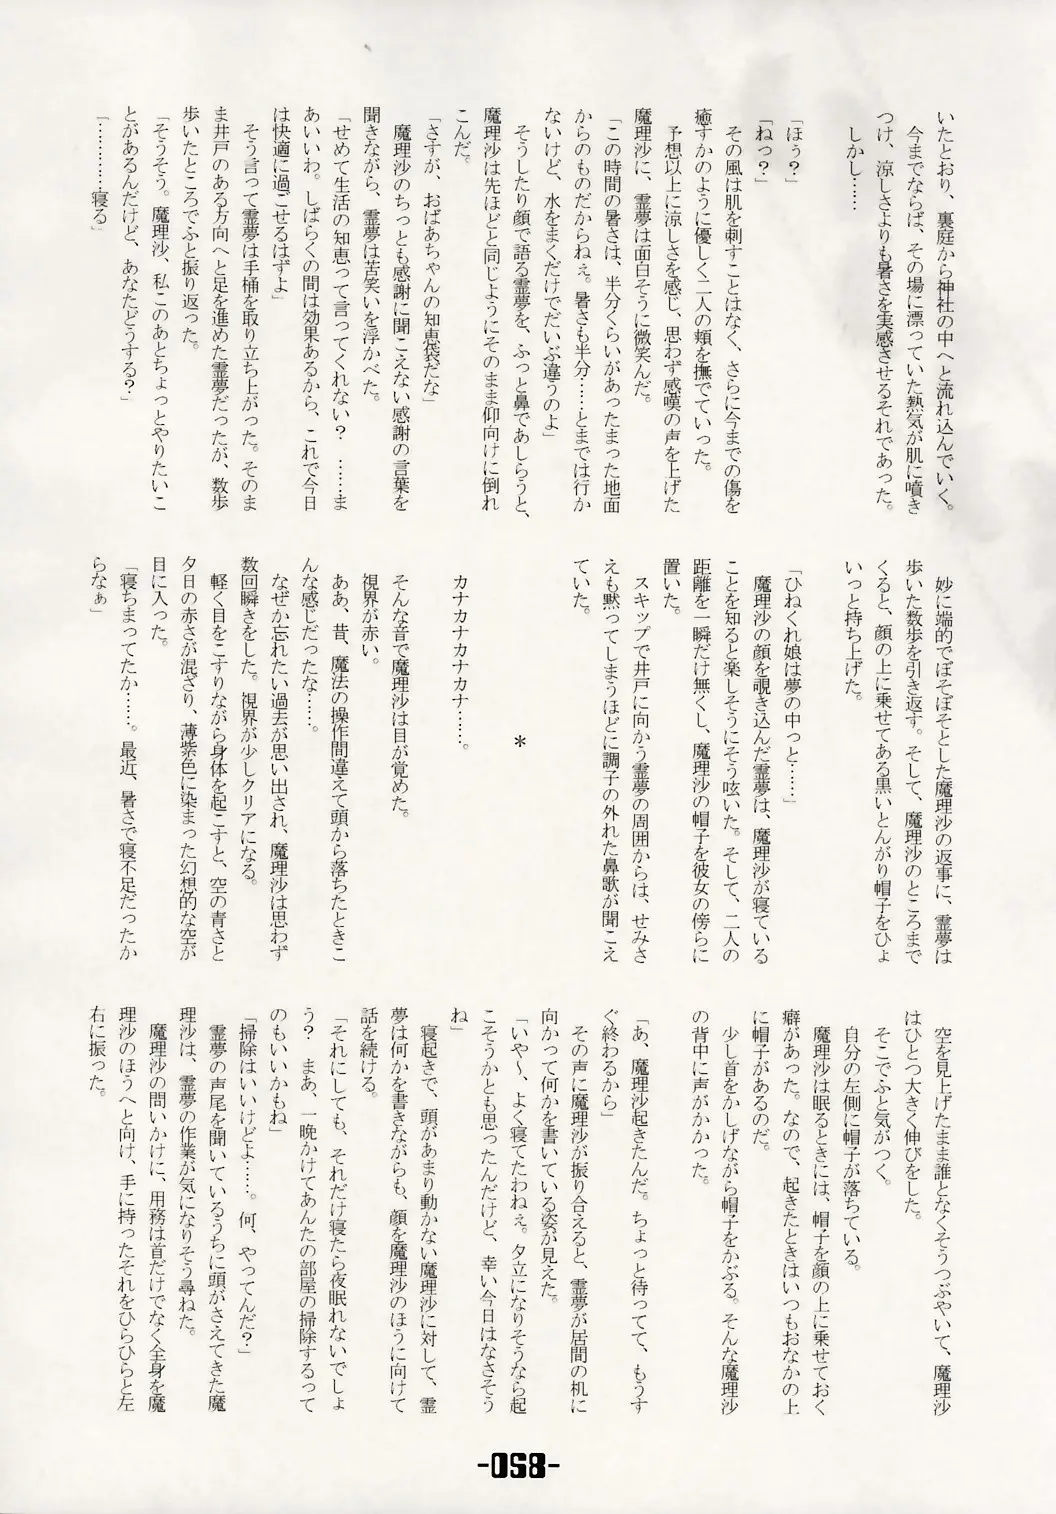 いたとおり、裏庭から神社の中へと流れ込んでいく。
　今までならば、その場に漂っていた熱気が肌に噴き
つけ、涼しさよりも暑さを実感させるそれであった。
　しかし……
「ほぅ？」
「ねっ？」
　その風は肌を刺すことはなく、さらに今までの傷を
癒すかのように優しく二人の頬を撫でていった。
　予想以上に涼しさを感じ、思わず感嘆の声を上げた
魔理沙に、霊夢は面白そうに微笑んだ。
「この時間の暑さは、半分くらいがあったまった地面
からのものだからねぇ。暑さも半分……とまでは行か
ないけど、水をまくだけでだいぶ違うのよ」
　そうしたり顔で語る霊夢を、ふっと鼻であしらうと、
魔理沙は先ほどと同じようにそのまま仰向けに倒れ
こんだ。
「さすが、おばあちゃんの知恵袋だな」
　魔理沙のちっとも感謝に聞こえない感謝の言葉を
聞きながら、霊夢は苦笑いを浮かべた。
「せめて生活の知恵って言ってくれない？　……ま
あいいわ。しばらくの間は効果あるから、これで今日
は快適に過ごせるはずよ」
　そう言って霊夢は手桶を取り立ち上がった。そのま
ま井戸のある方向へと足を進めた霊夢だったが、数歩
歩いたところでふと振り返った。
「そうそう。魔理沙、私このあとちょっとやりたいこ
とがあるんだけど、あなたどうする？」
「…………寝る」
　妙に端的でぼそぼそとした魔理沙の返事に、霊夢は
歩いた数歩を引き返す。そして、魔理沙のところまで
くると、顔の上に乗せてある黒いとんがり帽子をひょ
いっと持ち上げた。
「ひねくれ娘は夢の中っと……」
　魔理沙の顔を覗き込んだ霊夢は、魔理沙が寝ている
ことを知ると楽しそうにそう呟いた。そして、二人の
距離を一瞬だけ無くし、魔理沙の帽子を彼女の傍らに
置いた。
　スキップで井戸に向かう霊夢の周囲からは、せみさ
えも黙ってしまうほどに調子の外れた鼻歌が聞こえ
ていた。
＊
　カナカナカナカナ……。
　そんな音で魔理沙は目が覚めた。
　視界が赤い。
　ああ、昔、魔法の操作間違えて頭から落ちたときこ
んな感じだったな……。
　なぜか忘れたい過去が思い出され、魔理沙は思わず
数回瞬きをした。視界が少しクリアになる。
　軽く目をこすりながら身体を起こすと、空の青さと
夕日の赤さが混ざり、薄紫色に染まった幻想的な空が
目に入った。
「寝ちまってたか……。最近、暑さで寝不足だったか
らなぁ」
　空を見上げたまま誰となくそうつぶやいて、魔理沙
はひとつ大きく伸びをした。
　そこでふと気がつく。
　自分の左側に帽子が落ちている。
　魔理沙は眠るときには、帽子を顔の上に乗せておく
癖があった。なので、起きたときはいつもおなかの上
に帽子があるのだ。
　少し首をかしげながら帽子をかぶる。そんな魔理沙
の背中に声がかかった。
「あ、魔理沙起きたんだ。ちょっと待ってて、もうす
ぐ終わるから」
　その声に魔理沙が振り合えると、霊夢が居間の机に
向かって何かを書いている姿が見えた。
「いや～、よく寝てたわねぇ。夕立になりそうなら起
こそうかとも思ったんだけど、幸い今日はなさそう
ね」
　寝起きで、頭があまり動かない魔理沙に対して、霊
夢は何かを書きながらも、顔を魔理沙のほうに向けて
話を続ける。
「それにしても、それだけ寝たら夜眠れないでしょ
う？　まあ、一晩かけてあんたの部屋の掃除するって
のもいいかもね」
「掃除はいいけどよ……。何、やってんだ？」
　霊夢の声尾を聞いているうちに頭がさえてきた魔
理沙は、霊夢の作業が気になりそう尋ねた。
　魔理沙の問いかけに、用務は首だけでなく全身を魔
理沙のほうへと向け、手に持ったそれをひらひらと左
右に振った。
-058-